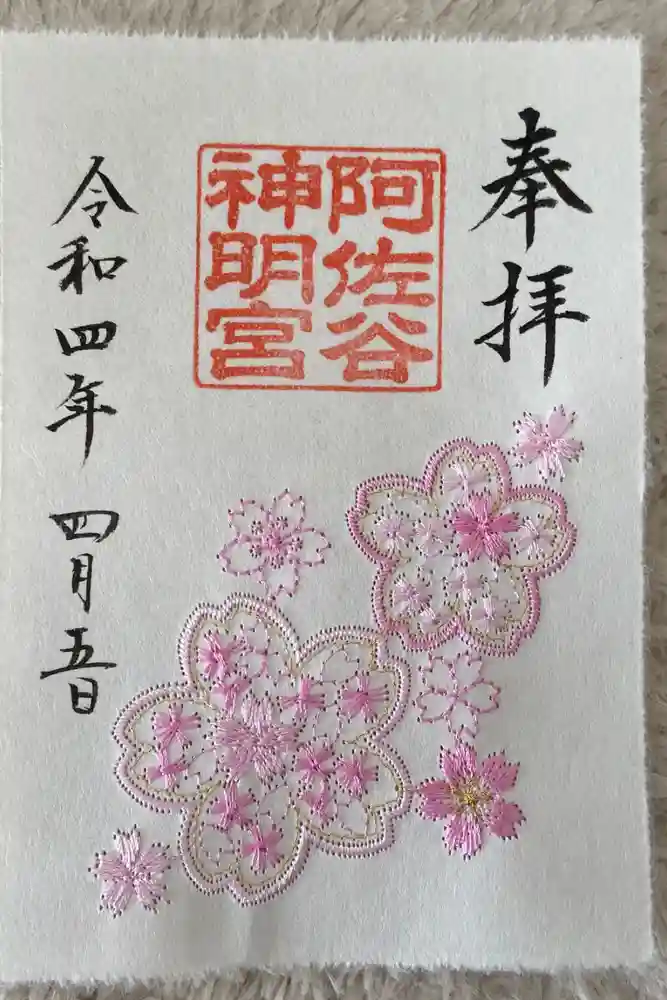 奉拝
阿佐谷
神明宮
令和四年 四月五日